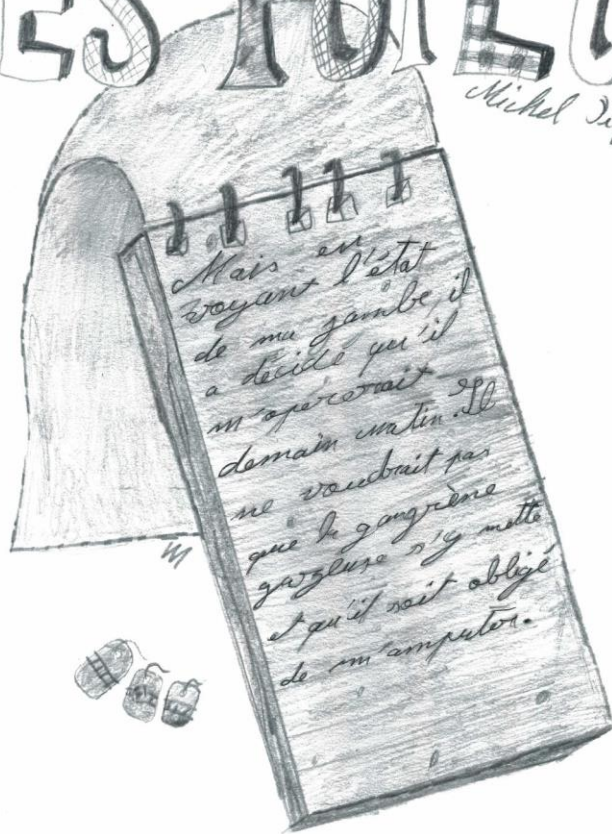 ES POIL
Michel
Mais en
voyant l'état
de ma jambe, il
a décidé qu'il
m'opererait
demain matin. Il
ne voudrait pas
que la gangrène
gazeuse s'y mette
et qu'il soit obligé
de m'amputer.